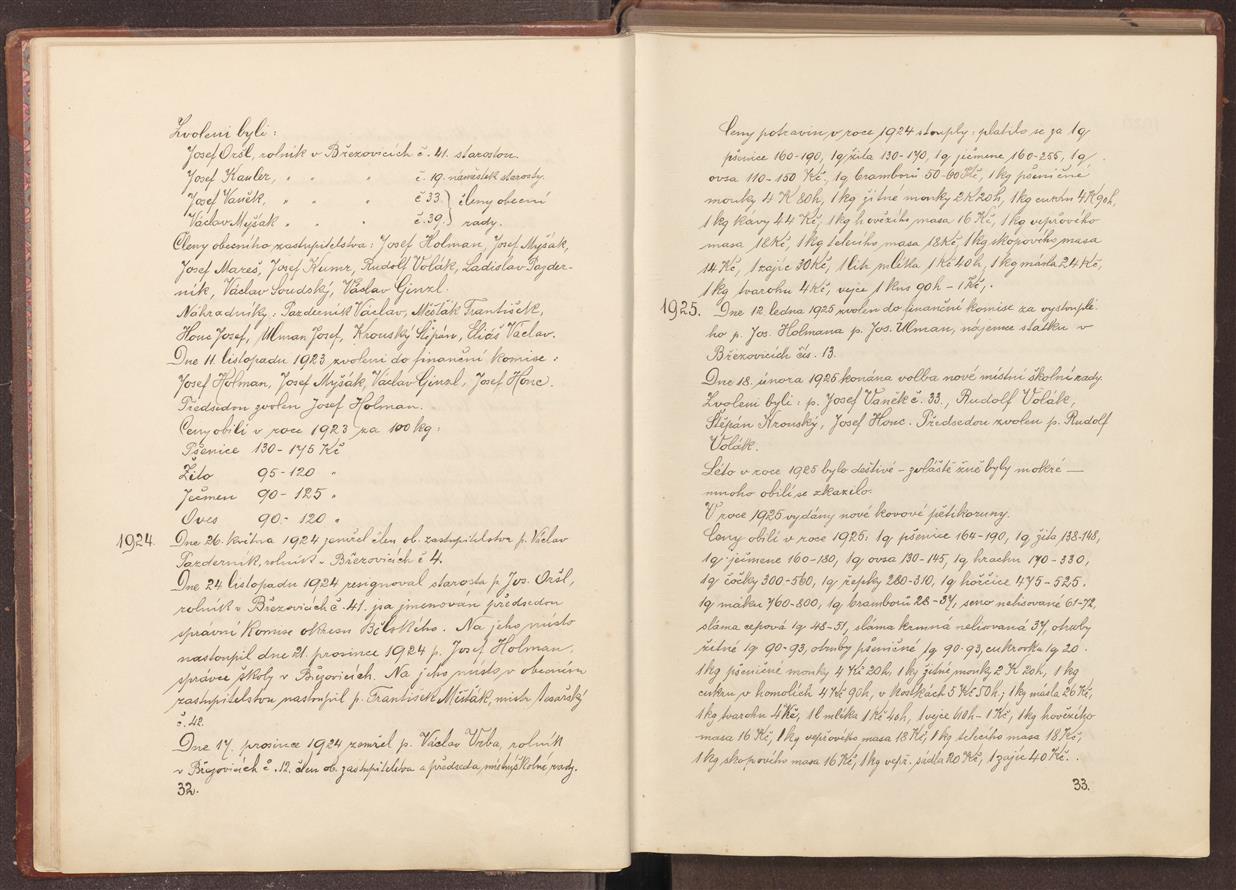 Zvoleni byli:
Josef Oršl, rolník v Březovicích č. 41. starostou.
Josef Kauler, " " " č. 19. náměstek starosty.
Josef Vaněk, " " " č. 33. } členy obecní
Václav Myšák " " " č. 39. } rady.
Členy obecního zastupitelstva: Josef Holman, Josef Myšák,
Josef Mareš, Josef Kumr, Rudolf Volák, Ladislav Pazder-
ník, Václav Soudský, Václav Ginzl.
Náhradníky: Pazderník Václav, Měšťák František,
Honc Josef, Ulman Josef, Krouský Štěpán, Eliáš Václav.
Dne 11. listopadu 1923 zvoleni do finanční komise:
Josef Holman, Josef Myšák, Václav Ginzl, Josef Honc.
Předsedou zvolen Josef Holman.
Ceny obilí v roce 1923 za 100 kg:
Pšenice 130-175 Kč
Žito 95-120 "
Ječmen 90-125 "
Oves 90-120 "
1924. Dne 26. května 1924 zemřel člen ob. zastupitelstva p. Václav
Pazderník, rolník v Březovicích č 4.
Dne 24 listopadu 1924 resignoval starosta p. Jos. Oršl,
rolník v Březovicích č. 41. jsa jmenován předsedou
správní komise okresu Bělského. Na jeho místo
nastoupil dne 21. prosince 1924 p. Josef Holman,
správce školy v Březovicích. Na jeho místo v obecním
zastupitelstvu nastoupil p. František Měšťák, mistr tesařský
č. 42.
Dne 17. prosince 1924 zemřel p. Václav Vrba, rolník
v Březovicích č. 12. člen ob. zastupitelstva a předseda místní školní rady.
32.
Ceny potravin v roce 1924 stouply: platilo se za 1q
pšenice 160-190, 1q žita 130-170, 1q ječmene 160-255, 1q
ovsa 110-150 Kč, 1q bramborů 50-60 Kč, 1 kg pšeničné
mouky 4 K 80h, 1 kg žitné mouky 2K 20h, 1 kg cukru 4 K 90h,
1 kg kávy 44 Kč, 1 kg hovězího masa 16 Kč, 1 kg vepřového
masa 18 Kč, 1 kg telecího masa 18 Kč, 1 kg skopového masa
14 Kč, 1 zajíc 30 Kč, 1 litr mléka 1 Kč 40h, 1 kg másla 24 Kč,
1 kg tvarohu 4 Kč, vejce 1 kus 90h - 1 Kč.
1925. Dne 12. ledna 1925 zvolen do finanční komise za vystouplé-
ho p. Jos. Holmana p. Jos. Ulman, nájemce statku v
Březovicích čís. 13.
Dne 18. února 1925 konána volba nové místní školní rady.
Zvoleni byli: p. Josef Vaněk č. 33., Rudolf Volák,
Štěpán Krouský, Josef Honc. Předsedou zvolen p. Rudolf
Volák.
Léto v roce 1925 bylo deštivé - zvláště žně byly mokré —
mnoho obilí se zkazilo.
V roce 1925 vydány nové kovové pětikoruny.
Ceny obilí v roce 1925: 1q pšenice 164-190, 1q žita 138-148,
1q ječmene 160-180, 1q ovsa 130-145, 1q hrachu 170-330,
1q čočky 300-560, 1q řepky 280-310, 1q hořčice 475-525.
1q máku 760-800, 1q bramborů 28-37, seno nelisované 61-72,
sláma cepová 1q 48-51, sláma krmná nelisovaná 37, otruby
žitné 1q 90-93, otruby pšeničné 1q 90-93, cukrovka 1q 20.
1 kg pšeničné mouky 4 Kč 20h, 1 kg žitné mouky 2 K 20h, 1 kg
cukru v homolích 4 Kč 90h, v kostkách 5 Kč 50h; 1 kg másla 26 Kč,
1 kg tvarohu 4 Kč, 1 l mléka 1 Kč 40h, 1 vejce 40h - 1 Kč, 1 kg hovězího
masa 16 Kč, 1 kg vepřového masa 18 Kč, 1 kg telecího masa 18 Kč,
1 kg skopového masa 16 Kč, 1 kg vepř. sádla 20 Kč, 1 zajíc 40 Kč.
33.